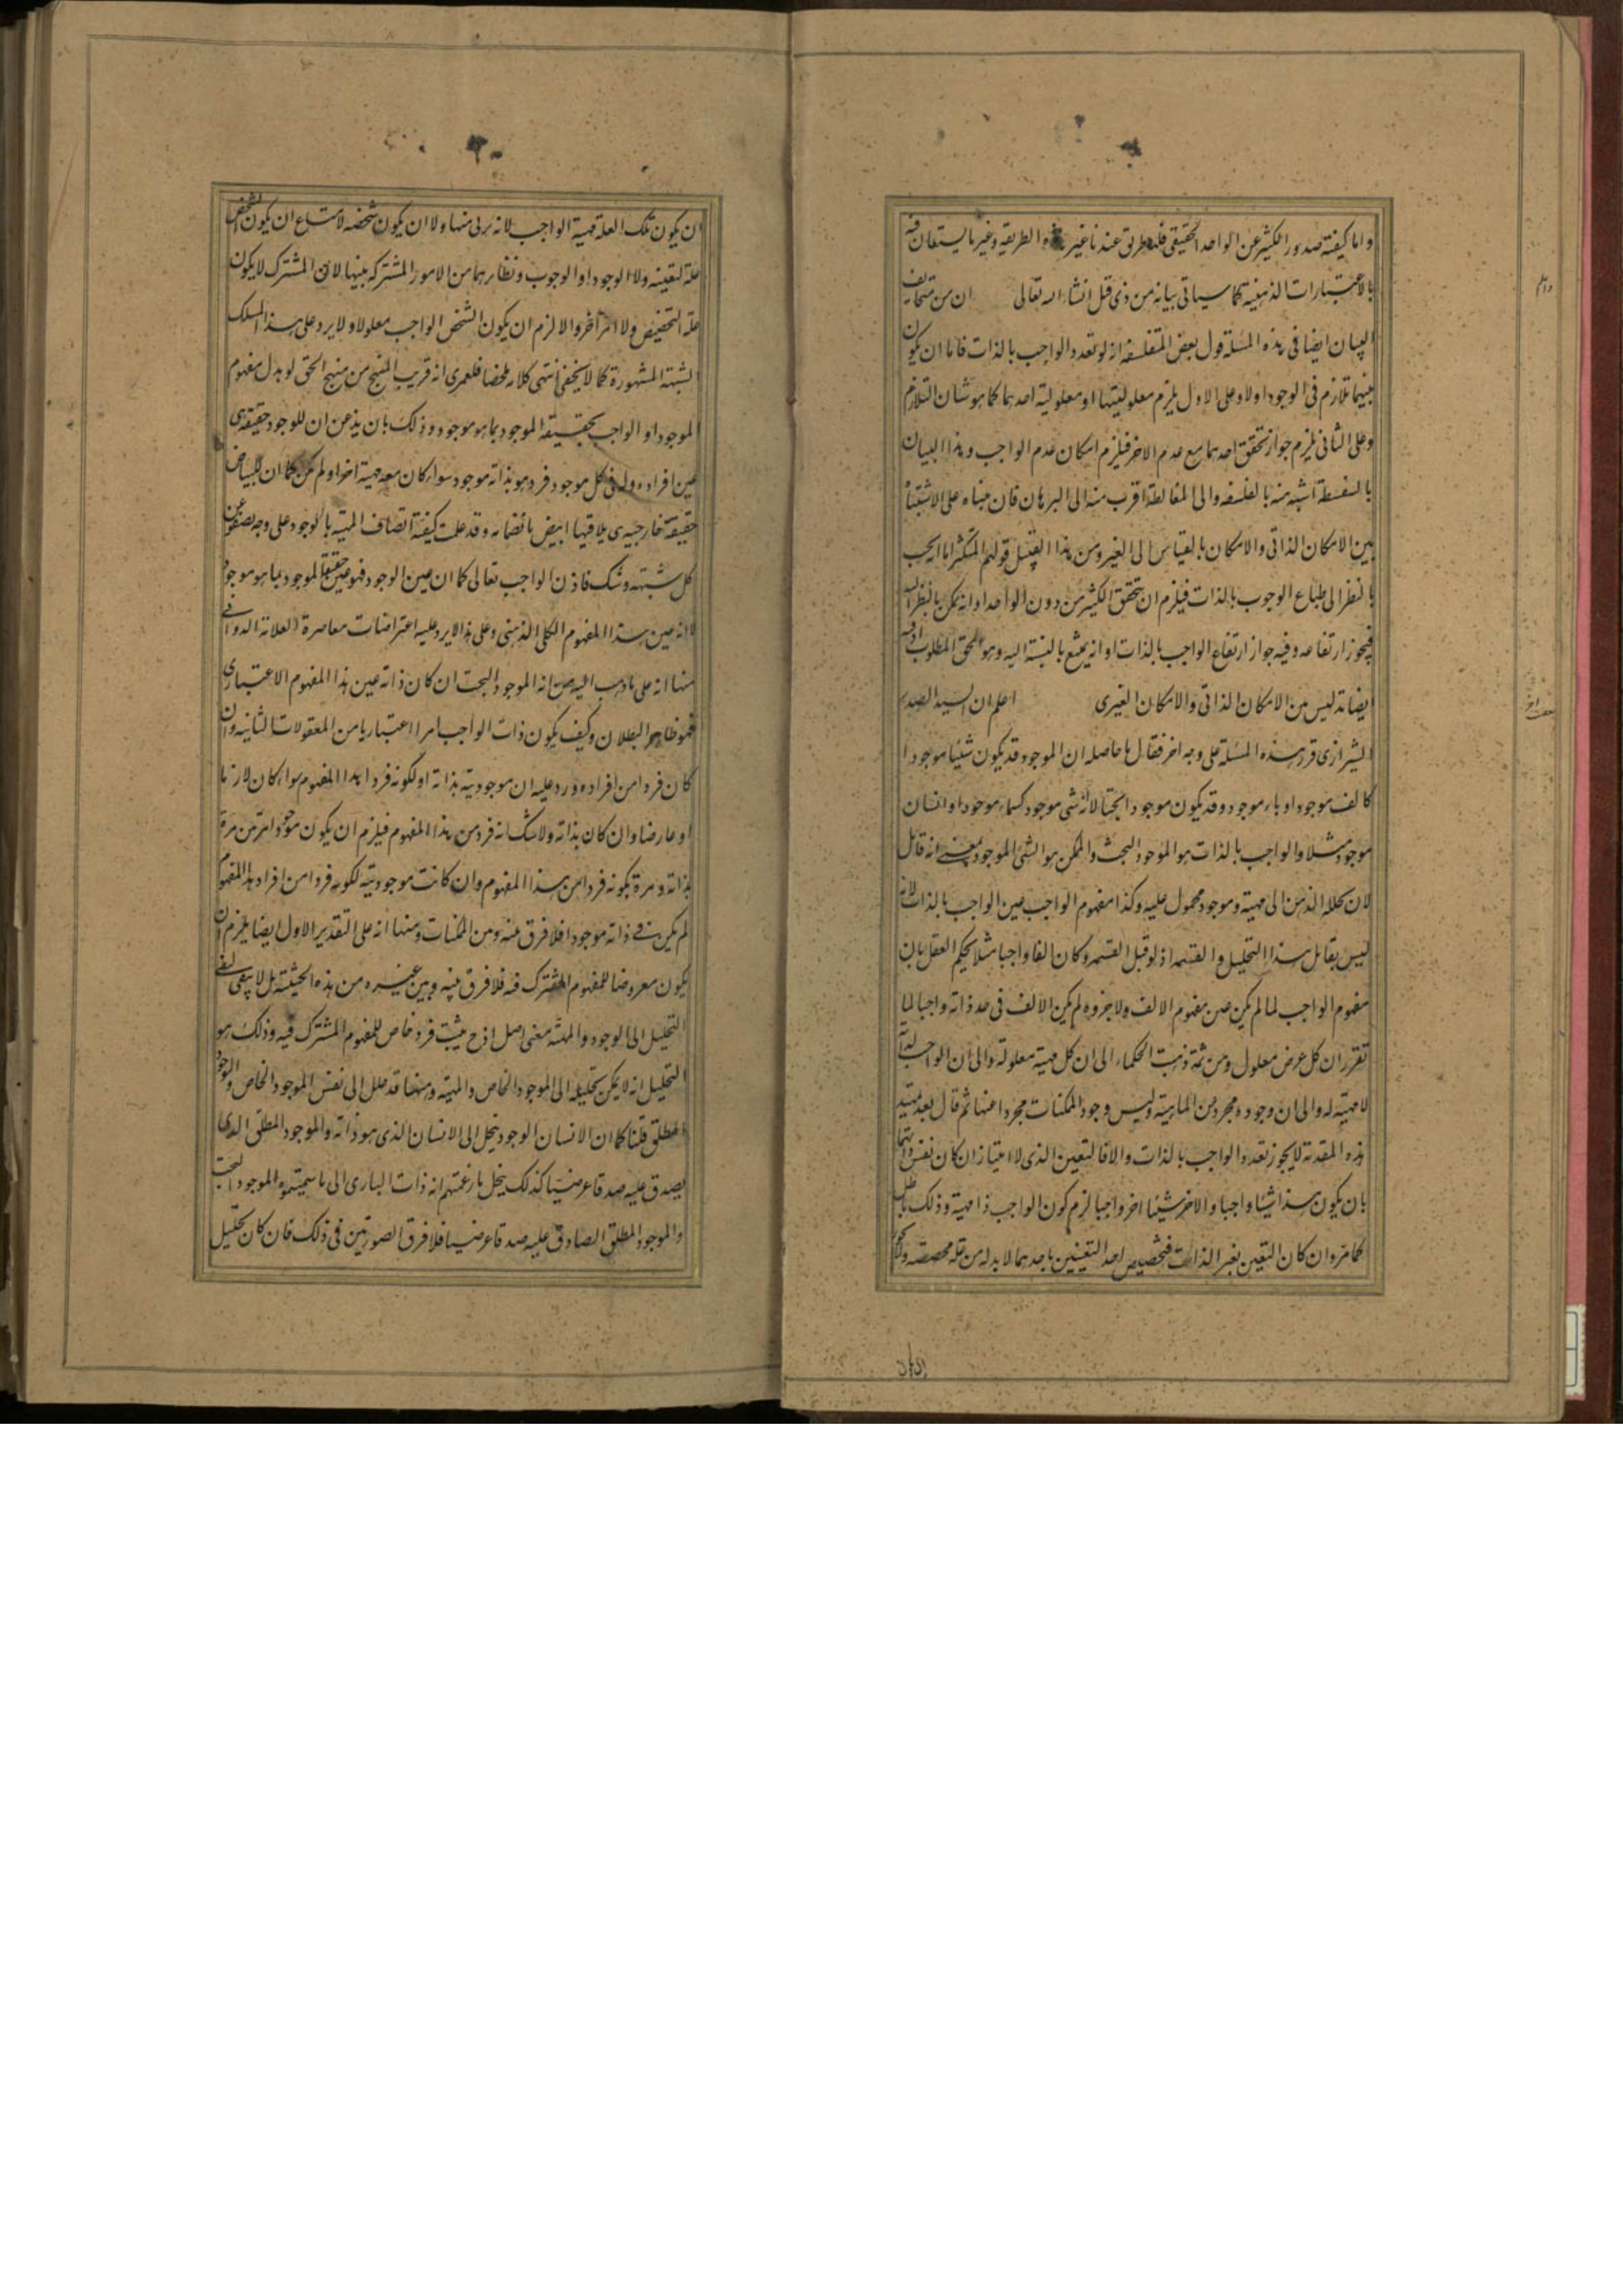 واما كيفية صدور الكثير عن الواحد الحقيقى فله طريق عندنا غير هذه الطريقه وغير ما يستعان فيه
بالاعتبارات الذهنية كما سياتى بيانه من ذى قبل انشاء الله تعالى ان من سخايف
البيان ايضا فى هذه المسئلة قول بعض المتفلسفه انه لو تعدد الواجب بالذات فاما ان يكون
بينهما تلازم فى الوجود اولا وعلى الاول يلزم معلوليتهما او معلولية احدهما كما هو شان التلازم
وعلى الثانى يلزم جواز تحقق احدهما مع عدم الاخر فيلزم امكان عدم الواجب وهذا البيان
بالسفسطة اشبه منه بالفلسفه والى المغالطة اقرب منه الى البرهان فان مبناه على الاشتباه
بين الامكان الذاتى والامكان بالقياس الى الغير ومن هذا القبيل قولهم المتكثر اما يجب
بالنظر الى طباع الوجوب بالذات فيلزم ان يتحقق الكثير من دون الواحد او انه يمكن بالنظر اليه
فيجوز ارتفاعه وفيه جواز ارتفاع الواجب بالذات او انه يمتنع بالنسبة اليه وهو الحق المطلوب اذ فيه
ايضا تدليس من الامكان الذاتى والامكان الغيرى اعلم ان السيد الصدر
الشيرازى قرر هذه المسئلة على وجه اخر فقال ما حاصله ان الموجود قد يكون شيئا موجودا
كالف موجود او باء موجود وقد يكون موجودا بحتا لا انه شى موجود كسماء موجود او انسان
موجود مثلا والواجب بالذات هو الموجود البحت والممكن هو الشى الموجود بمعنى انه قابل
لان يحلله الذهن الى مهية وموجود محمول عليه وكذا مفهوم الواجب عين الواجب بالذات لانه
ليس بقابل هذا التحليل والقسمه اذ لو قبل القسمه وكان الفا واجبا مثلا يحكم العقل بان
مفهوم الواجب لما لم يكن عين مفهوم الالف ولا جزوه لم يكن الالف فى حد ذاته واجبا لما
تقرر ان كل عرض معلول ومن ثمة ذهب الحكماء الى ان كل مهية معلولة والى ان الواجب لذاته
لا مهية له والى ان وجوده مجرد من الماهية وليس وجود الممكنات مجردا عنها ثم قال بعد تمهيد
هذه المقدمة لا يجوز تعدد الواجب بالذات والا فالتعين الذى للامتياز ان كان نفس ذاتهما
بان يكون هذا شيئا واجبا والاخر شيئا اخر واجبا لزم كون الواجب ذا مهية وذلك باطل
كما مر وان كان التعين بغير الذات فتخصيص احد التعينين باحدهما لا بد له من علة مخصصه ولا يجوز
ان يكون تلك العلة مهية الواجب لانه برى منها ولا ان يكون شخصه لامتناع ان يكون الشخص
علة لتعينه ولا الوجود او الوجوب ونظايرهما من الامور المشتركه بينها لان المشترك لا يكون
علة التخصيص ولا امر اخر والا لزم ان يكون الشخص الواجب معلولا ولا يرد على هذا المسلك
الشبهة المشهورة كما لا يخفى انتهى كلامه ملخصا فلعمرى انه قريب المنهج من منهج الحق لو بدل مفهوم
الموجود او الواجب بحقيقة الموجود بما هو موجود وذلك بان يذعن ان للوجود حقيقة هى
عين افراده وله فى كل موجود فرد هو بذاته موجود سواء كان معه مهية اخر او لم يكن كما ان للبياض
حقيقة خارجيه هى يلاقيها ابيض بانضمامه وقد علمت كيفية اتصاف المهية بالوجود على وجه يصفو عن
كل شبهة وشك فاذن الواجب تعالى كما ان عين الوجود فهو عين حقيقة الموجود بما هو موجود
لا انه عين هذا المفهوم الكلى الذهنى وعلى هذا لا يرد عليه اعتراضات معاصرة العلامة الدوانى
منها انه على ما ذهب اليه من انه الموجود البحت ان كان ذاته عين هذا المفهوم الاعتبارى
فهو ظاهر البطلان وكيف يكون ذات الواجب امرا اعتباريا من المعقولات الثانية وان
كان فردا من افراده ورد عليه ان موجوديته بذاته او لكونه فردا لهذا المفهوم سواء كان لازما
او عارضا وان كان بذاته ولا شك انه فرد من هذا المفهوم فيلزم ان يكون موجودا مرتين مرة
بذاته ومرة بكونه فردا من هذا المفهوم وان كانت موجوديته لكونه فردا من افراد هذا المفهوم
لم يكن فى ذاته موجودا فلا فرق بينه وبين الممكنات ومنها انه على التقدير الاول ايضا يلزم ان
يكون معروضا للمفهوم المشترك فيه فلا فرق بينه وبين غيره من هذه الحيثية بل لا يبقى لنفى
التحليل الى الوجود والمهية معنى اصل اذ ح يثبت فرد خاص للمفهوم المشترك فيه وذلك هو
التحليل انه لا يمكن تحليله الى الموجود الخاص والمهية ومنها قد حلل الى نفس الموجود الخاص والموجود
المطلق قلنا كما ان الانسان الموجود ينحل الى الانسان الذى هو ذاته والموجود المطلق الذى
يصدق عليه صدقا عرضيا كذلك ينحل ما زعمتم انه ذات البارى الى ما سميتموه الموجود البحت
والموجود المطلق الصادق عليه صدقا عرضيا فلا فرق الصورتين فى ذلك فان كان تحليل